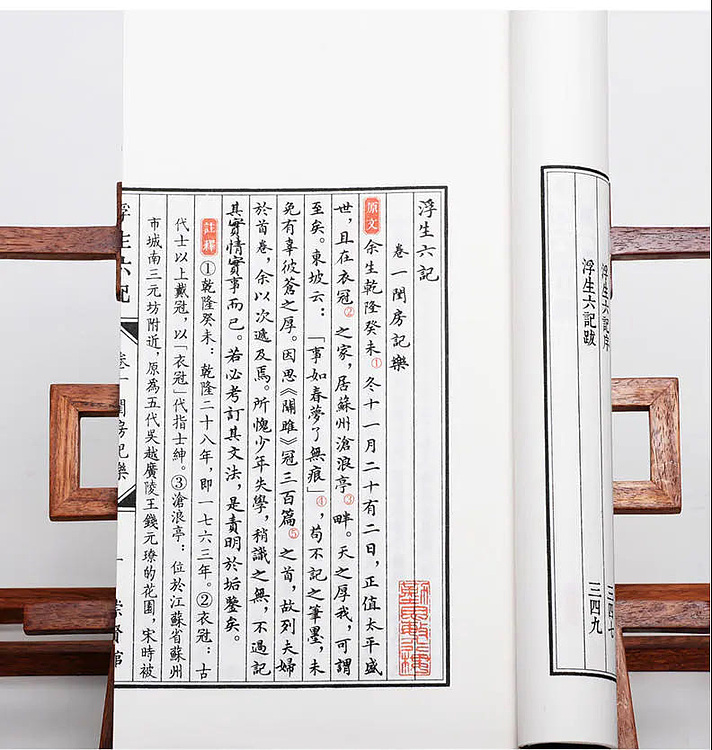 浮生六記序 三四七
浮生六記跋 三四九
浮生六記
卷一閨房記樂
原文 余生乾隆癸未①冬十一月二十有二日，正值太平盛
世，且在衣冠②之家，居蘇州滄浪亭③畔。天之厚我，可謂
至矣。東坡云：「事如春夢了無痕」④，苟不記之筆墨，未
免有辜彼蒼之厚。因思《關雎》冠三百篇⑤之首，故列夫婦
於首卷，余以次遞及焉。所愧少年失學，稍識之無，不過記
其實情實事而已。若必考訂其文法，是責明於垢鑒矣。
註釋 ①乾隆癸未：乾隆二十八年，即一七六三年。②衣冠：古
代士以上戴冠，以「衣冠」代指士紳。③滄浪亭：位於江蘇省蘇州
市城南三元坊附近，原為五代吳越廣陵王錢元璙的花園，宋時被
浮生六記 卷一 閨房記樂 一 崇賢館